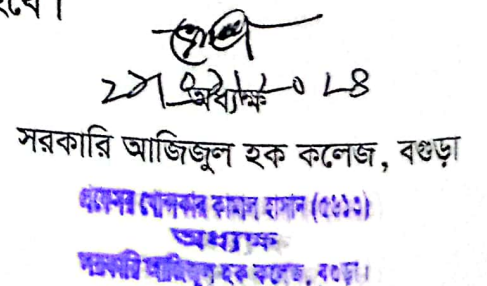 হবে।
অধ্যক্ষ
সরকারি আজিজুল হক কলেজ, বগুড়া
প্রফেসর খোন্দকার কামাল হাসান (৫৬১৩)
অধ্যক্ষ
সরকারি আজিজুল হক কলেজ, বগুড়া।